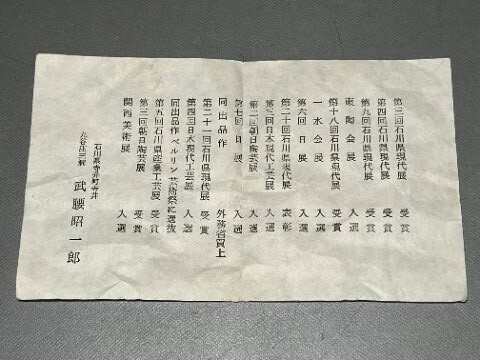 第三回石川県現代展 受賞
第四回石川県現代展 受賞
第九回石川県現代展 受賞
東陶会展 入選
一水会展 入選
第十八回石川県現代展 受賞
第六回日展 入選
第二十回石川県現代展 表彰
第三回日本現代工芸展 入選
第二回朝日陶芸展 入選
第七回日展 入選
同出品作 外務省買上
第二十一回石川県現代展 受賞
第四回日本現代工芸展 入選
同出品作 ベルリン芸術祭に選抜
第五回石川県産業工芸展 受賞
第三回朝日陶芸展 受賞
関西美術展 入選
石川県寺井町寺井
九谷庄三
武腰昭一郎